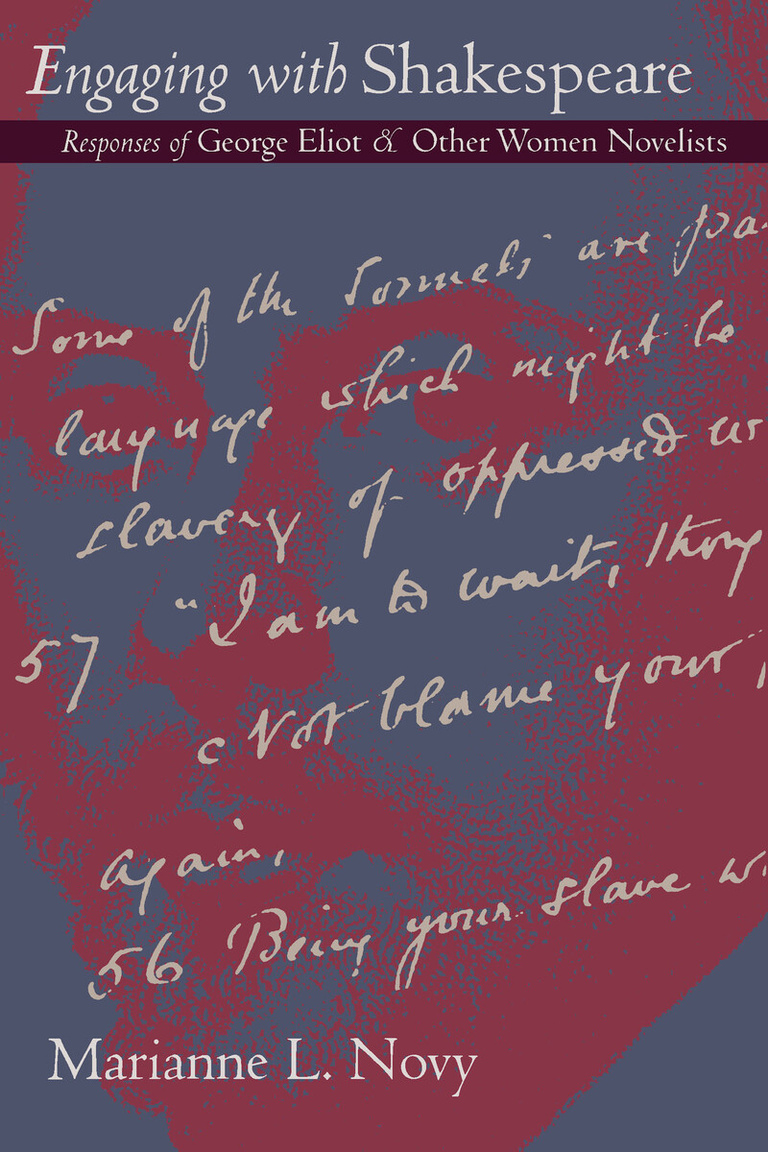 Engaging with Shakespeare
Responses of George Eliot & Other Women Novelists
Some of the Sonnets are pa
language which might be
slavery of oppressed w
57 "I am to wait, thoug
Not blame your
Again,
56 "Being your slave w
Marianne L. Novy